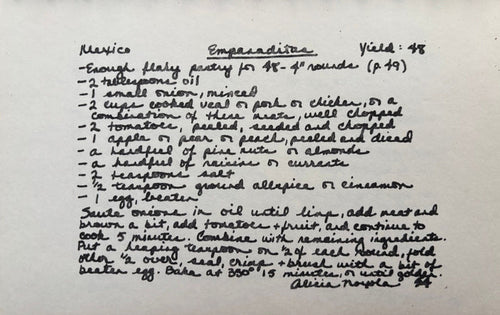 Mexico Empanaditas Yield: 48
-Enough flaky pastry for 48-4" rounds (p. 49)
-2 tablespoons oil
-1 small onion, minced
-2 cups cooked veal or pork or chicken, or a
combination of these meats, well chopped
-2 tomatoes, peeled, seeded and chopped
-1 apple or pear or peach, peeled and diced
-a handful of pine nuts or almonds
-a handful of raisins or currants
-2 teaspoons salt
-1/2 teaspoon ground allspice or cinnamon
-1 egg, beaten
Saute onions in oil until limp, add meat and
brown a bit, add tomatoes + fruit, and continue to
cook 5 minutes. Combine with remaining ingredients.
Put a heaping teaspoon on 1/2 of each round, fold
other 1/2 over, seal, crimp + brush with a bit of
beaten egg. Bake at 350° 15 minutes, or until golden.
Alicia